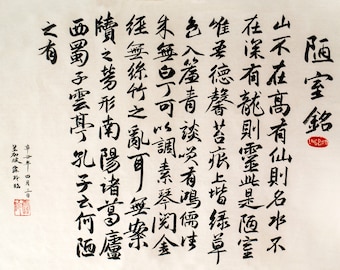 陋室銘
山不在高有仙則名水不
在深有龍則靈此是陋室
唯吾德馨苔痕上堦綠草
色入簾青談笑有鴻儒往
来無白丁可以調素琴閱金
經無絲竹之亂耳無案
牘之勞形南陽諸葛廬
西蜀子雲亭孔子云何陋
之有
年四月